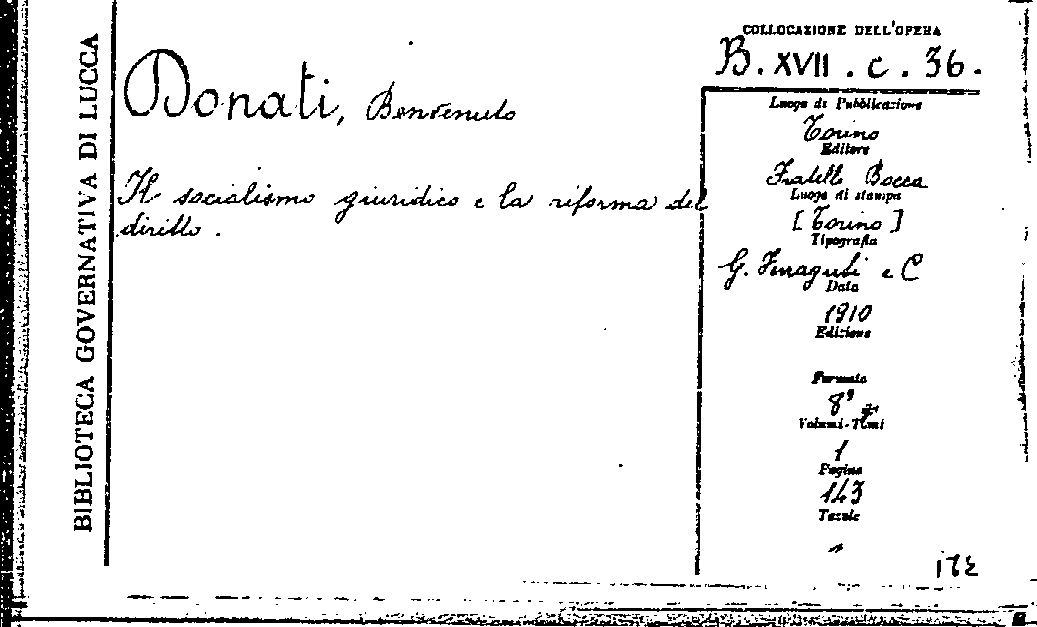 BIBLIOTECA GOVERNATIVA DI LUCCA
Donati, Benvenuto
Il socialismo giuridico e la riforma del
diritto.
COLLOCAZIONE DELL'OPERA
B. XVII. c. 36.
Luogo di Pubblicazione
Torino
Editore
Fratelli Bocca
Luogo di stampa
[Torino]
Tipografia
G. e C
Data
1910
Edizione
Formato
8°
Volumi-Tomi
1
Pagine
143
Tavole